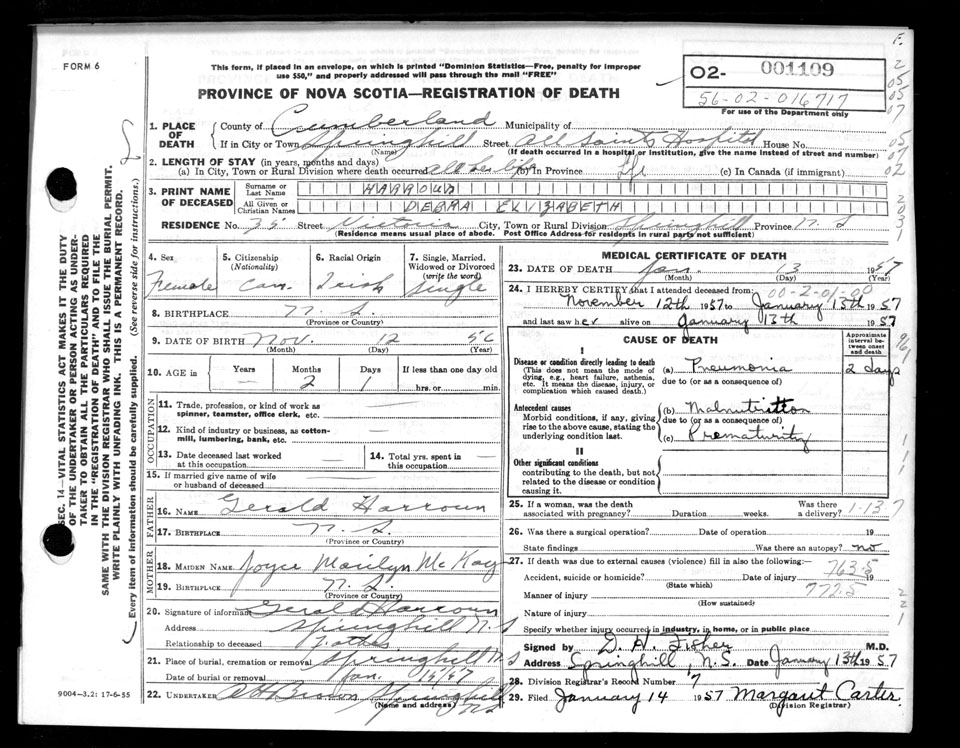 FORM 6
This form, if placed in an envelope, on which is printed "Dominion Statistics—Free, penalty for improper
use $50," and properly addressed will pass through the mail "FREE"
PROVINCE OF NOVA SCOTIA—REGISTRATION OF DEATH
O2- 001109
56-02-016717
For use of the Department only
SEC. 14—VITAL STATISTICS ACT MAKES IT THE DUTY
OF THE UNDERTAKER OR PERSON ACTING AS UNDER-
TAKER TO OBTAIN ALL THE PARTICULARS REQUIRED
IN THE "REGISTRATION OF DEATH" AND TO FILE THE
SAME WITH THE DIVISION REGISTRAR WHO SHALL ISSUE THE BURIAL PERMIT.
WRITE PLAINLY WITH UNFADING INK. THIS IS A PERMANENT RECORD.
Every item of information should be carefully supplied. (See reverse side for instructions.)
1. PLACE OF DEATH
County of Cumberland Municipality of
If in City or Town Springhill Street All Saints Hospital House No.
(Name) (If death occurred in a hospital or institution, give the name instead of street and number)
2. LENGTH OF STAY (in years, months and days)
(a) In City, Town or Rural Division where death occurred all her life (b) In Province (c) In Canada (if immigrant)
3. PRINT NAME OF DECEASED
Surname or Last Name HARROUN
All Given or Christian Names DEBRA ELIZABETH
RESIDENCE No. 35 Street Victoria City, Town or Rural Division Springhill Province N.S
(Residence means usual place of abode. Post Office Address for residents in rural parts not sufficient)
4. Sex Female
5. Citizenship (Nationality) Can
6. Racial Origin Irish
7. Single, Married, Widowed or Divorced (write the word) Single
8. BIRTHPLACE N.S.
(Province or Country)
9. DATE OF BIRTH Nov. 12 56
(Month) (Day) (Year)
10. AGE in Years — Months 2 Days 1 If less than one day old
hrs. or min.
OCCUPATION
11. Trade, profession, or kind of work as
spinner, teamster, office clerk, etc. —
12. Kind of industry or business, as cotton-
mill, lumbering, bank, etc. —
13. Date deceased last worked
at this occupation —
14. Total yrs. spent in
this occupation —
15. If married give name of wife
or husband of deceased —
FATHER
16. NAME Gerald Harroun
17. BIRTHPLACE N.S.
(Province or Country)
MOTHER
18. MAIDEN NAME Joyce Marilyn McKay
19. BIRTHPLACE N.S.
(Province or Country)
20. Signature of informant Gerald Harroun
Address Springhill N.S
Relationship to deceased Father
21. Place of burial, cremation or removal Springhill N.S
Date of burial or removal Jan. 15/57
22. UNDERTAKER AH Brown Springhill
(Name and address) N.S
9004-3.2: 17-6-55
MEDICAL CERTIFICATE OF DEATH
23. DATE OF DEATH Jan. 13 1957
(Month) (Day) (Year)
00-2-01-00
24. I HEREBY CERTIFY that I attended deceased from:
November 12th 1957 to January 13th 1957
and last saw her alive on January 13th 1957
CAUSE OF DEATH
Approximate interval between onset and death
I
Disease or condition directly leading to death
(This does not mean the mode of dying, e.g., heart failure, asthenia, etc. It means the disease, injury, or complication which caused death.)
(a) Pneumonia 2 days
due to (or as a consequence of)
Antecedent causes
Morbid conditions, if any, giving rise to the above cause, stating the underlying condition last.
(b) Malnutrition
due to (or as a consequence of)
(c) Prematurity
II
Other significant conditions
contributing to the death, but not related to the disease or condition causing it.
25. If a woman, was the death
associated with pregnancy? Duration weeks. Was there a delivery? 1-13-7
26. Was there a surgical operation? Date of operation 19
State findings Was there an autopsy? no
27. If death was due to external causes (violence) fill in also the following:— 763.5
Accident, suicide or homicide? (State which) Date of injury 19
772.5
Manner of injury
(How sustained)
Nature of injury
Specify whether injury occurred in industry, in home, or in public place
Signed by D. H. Fisher M.D.
Address Springhill, N.S. Date January 13th 1957
28. Division Registrar's Record Number 7
29. Filed January 14 1957 Margaret Carter
(Division Registrar)